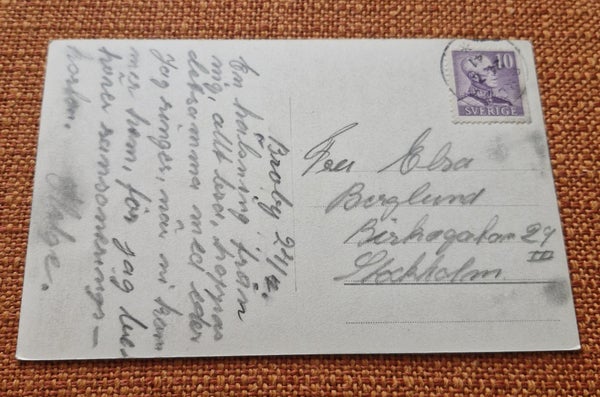 Broby 22/4.
En hälsning från
mig, allt bra, hoppas
detsamma med eder
Jag ringer, när ni kom
mer hem, för jag be
höver ransonerings-
korten.
Helge.
10
SVERIGE
Fru Elsa
Berglund
Birkagatan 29
III
Stockholm